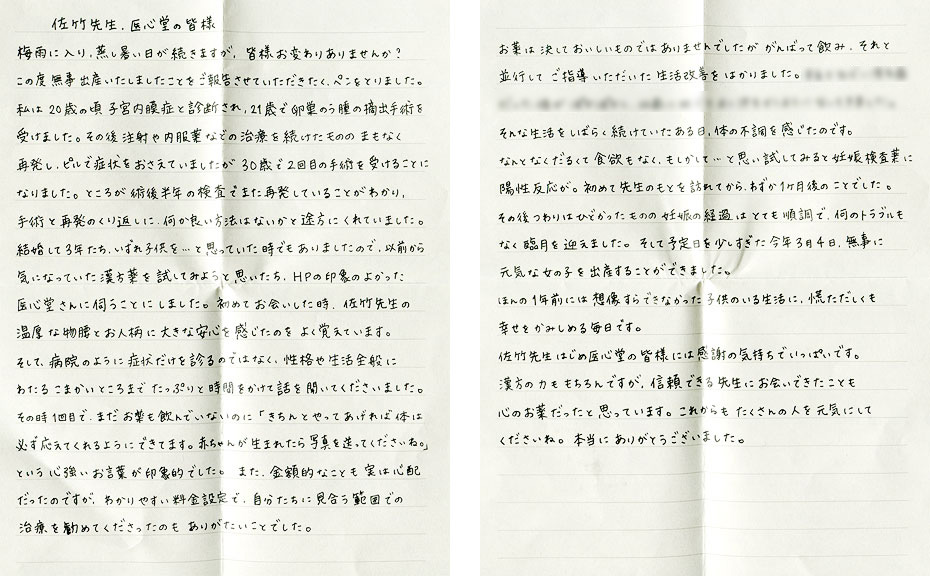 佐竹先生、医心堂の皆様
梅雨に入り、蒸し暑い日が続きますが、皆様お変わりありませんか?
この度無事出産いたしましたことをご報告させていただきたく、ペンをとりました。
私は20歳の頃子宮内膜症と診断され、21歳で卵巣のう腫の摘出手術を
受けました。その後注射や内服薬などの治療を続けたもののまもなく
再発し、ピルで症状をおさえていましたが30歳で2回目の手術を受けることに
なりました。ところが術後半年の検査でまた再発していることがわかり、
手術と再発のくり返しに、何か良い方法はないかと途方にくれていました。
結婚して3年たち、いずれ子供を…と思っていた時でもありましたので、以前から
気になっていた漢方薬を試してみようと思いたち、HPの印象のよかった
医心堂さんに伺うことにしました。初めてお会いした時、佐竹先生の
温厚な物腰とお人柄に大きな安心を感じたのをよく覚えています。
そして、病院のように症状だけを診るのではなく、性格や生活全般に
わたるこまかいところまでたっぷりと時間をかけて話を聞いてくださいました。
その時1回目で、まだお薬も飲んでいないのに「きちんとやってあげれば体は
必ず応えてくれるようにできてます。赤ちゃんが生まれたら写真を送ってくださいね。」
という心強いお言葉が印象的でした。また、金額的なことも実は心配
だったのですが、わかりやすい料金設定で、自分たちに見合う範囲での
治療を勧めてくださったのもありがたいことでした。
お薬は決しておいしいものではありませんでしたががんばって飲み、それと
並行してご指導いただいた生活改善をはかりました。
そんな生活をしばらく続けていたある日、体の不調を感じたのです。
なんとなくだるくて食欲もなく、もしかして…と思い試してみると妊娠検査薬に
陽性反応が。初めて先生のもとを訪れてから、わずか1ヶ月後のことでした。
その後つわりはひどかったものの妊娠の経過はとても順調で、何のトラブルも
なく臨月を迎えました。そして予定日を少しすぎた今年3月4日、無事に
元気な女の子を出産することができました。
ほんの1年前には想像すらできなかった子供のいる生活に、慌ただしくも
幸せをかみしめる毎日です。
佐竹先生はじめ医心堂の皆様には感謝の気持ちでいっぱいです。
漢方の力ももちろんですが、信頼できる先生にお会いできたことも
心のお薬だったと思っています。これからもたくさんの人を元気にして
くださいね。本当にありがとうございました。